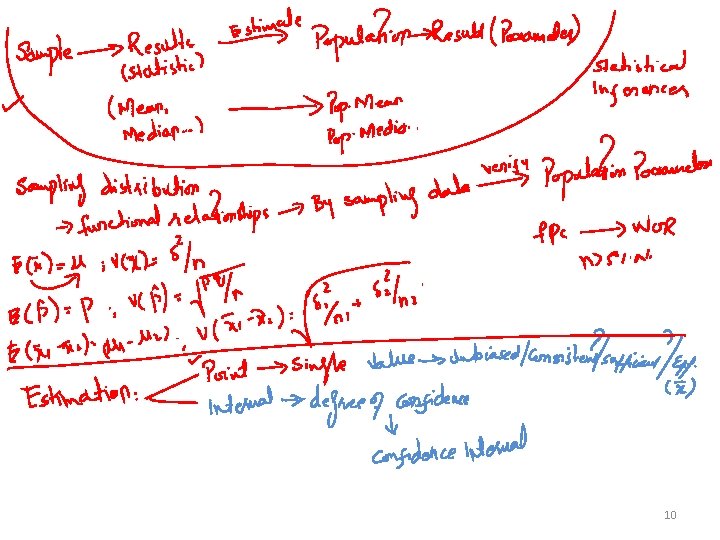 Sample → Results Estimate Population → Result (Parameter)
(statistic)
Statistical
Inferences
(Mean, → Pop. Mean
Median...) Pop. Media..
Sampling distribution
→ functional relationships → By sampling data verify → Population Parameter
fpc → WOR
n > 5%.N.
E(x̄) = μ ; V(x̄) = δ²/n
E(p̂) = P ; V(p̂) = √pq/n
E(x̄₁-x̄₂) = μ₁-μ₂) ; V(x̄₁-x̄₂) = √δ₁²/n₁ + δ₂²/n₂.
Estimation: Point → Single Value → Unbiased/Consistent/sufficient/Eff.
(x̄)
Interval → degree of Confidence
↓
Confidence Interval
10